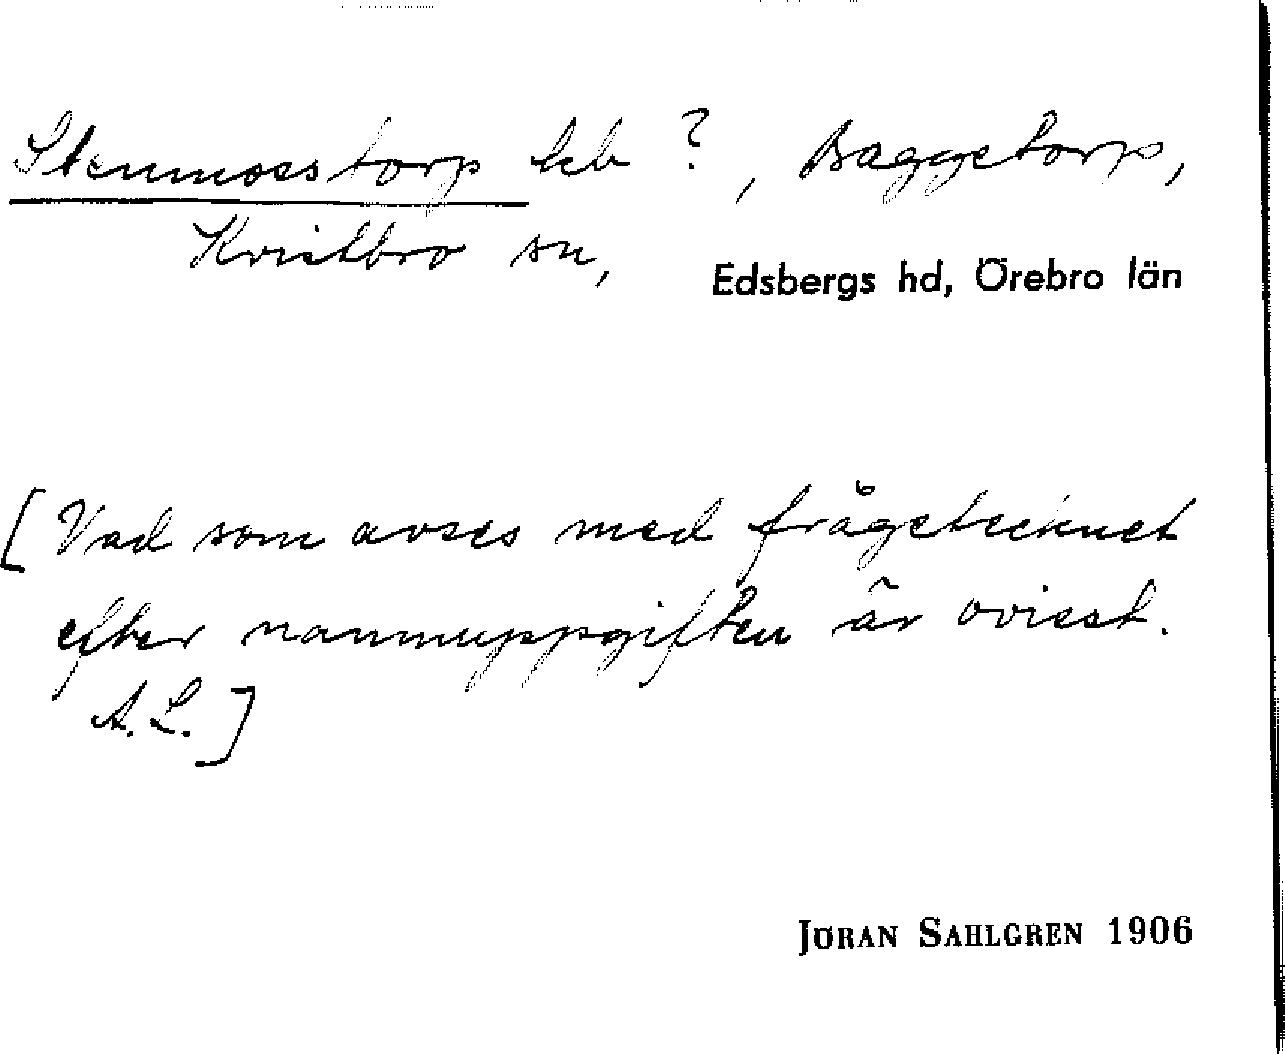 Stenmosstorp lcb ?, Baggetorp,
Kvistbro sn, Edsbergs hd, Örebro län
[Vad som avses med frågetecknet
efter namnuppgiften är ovisst.
A.L.]
JÖRAN SAHLGREN 1906